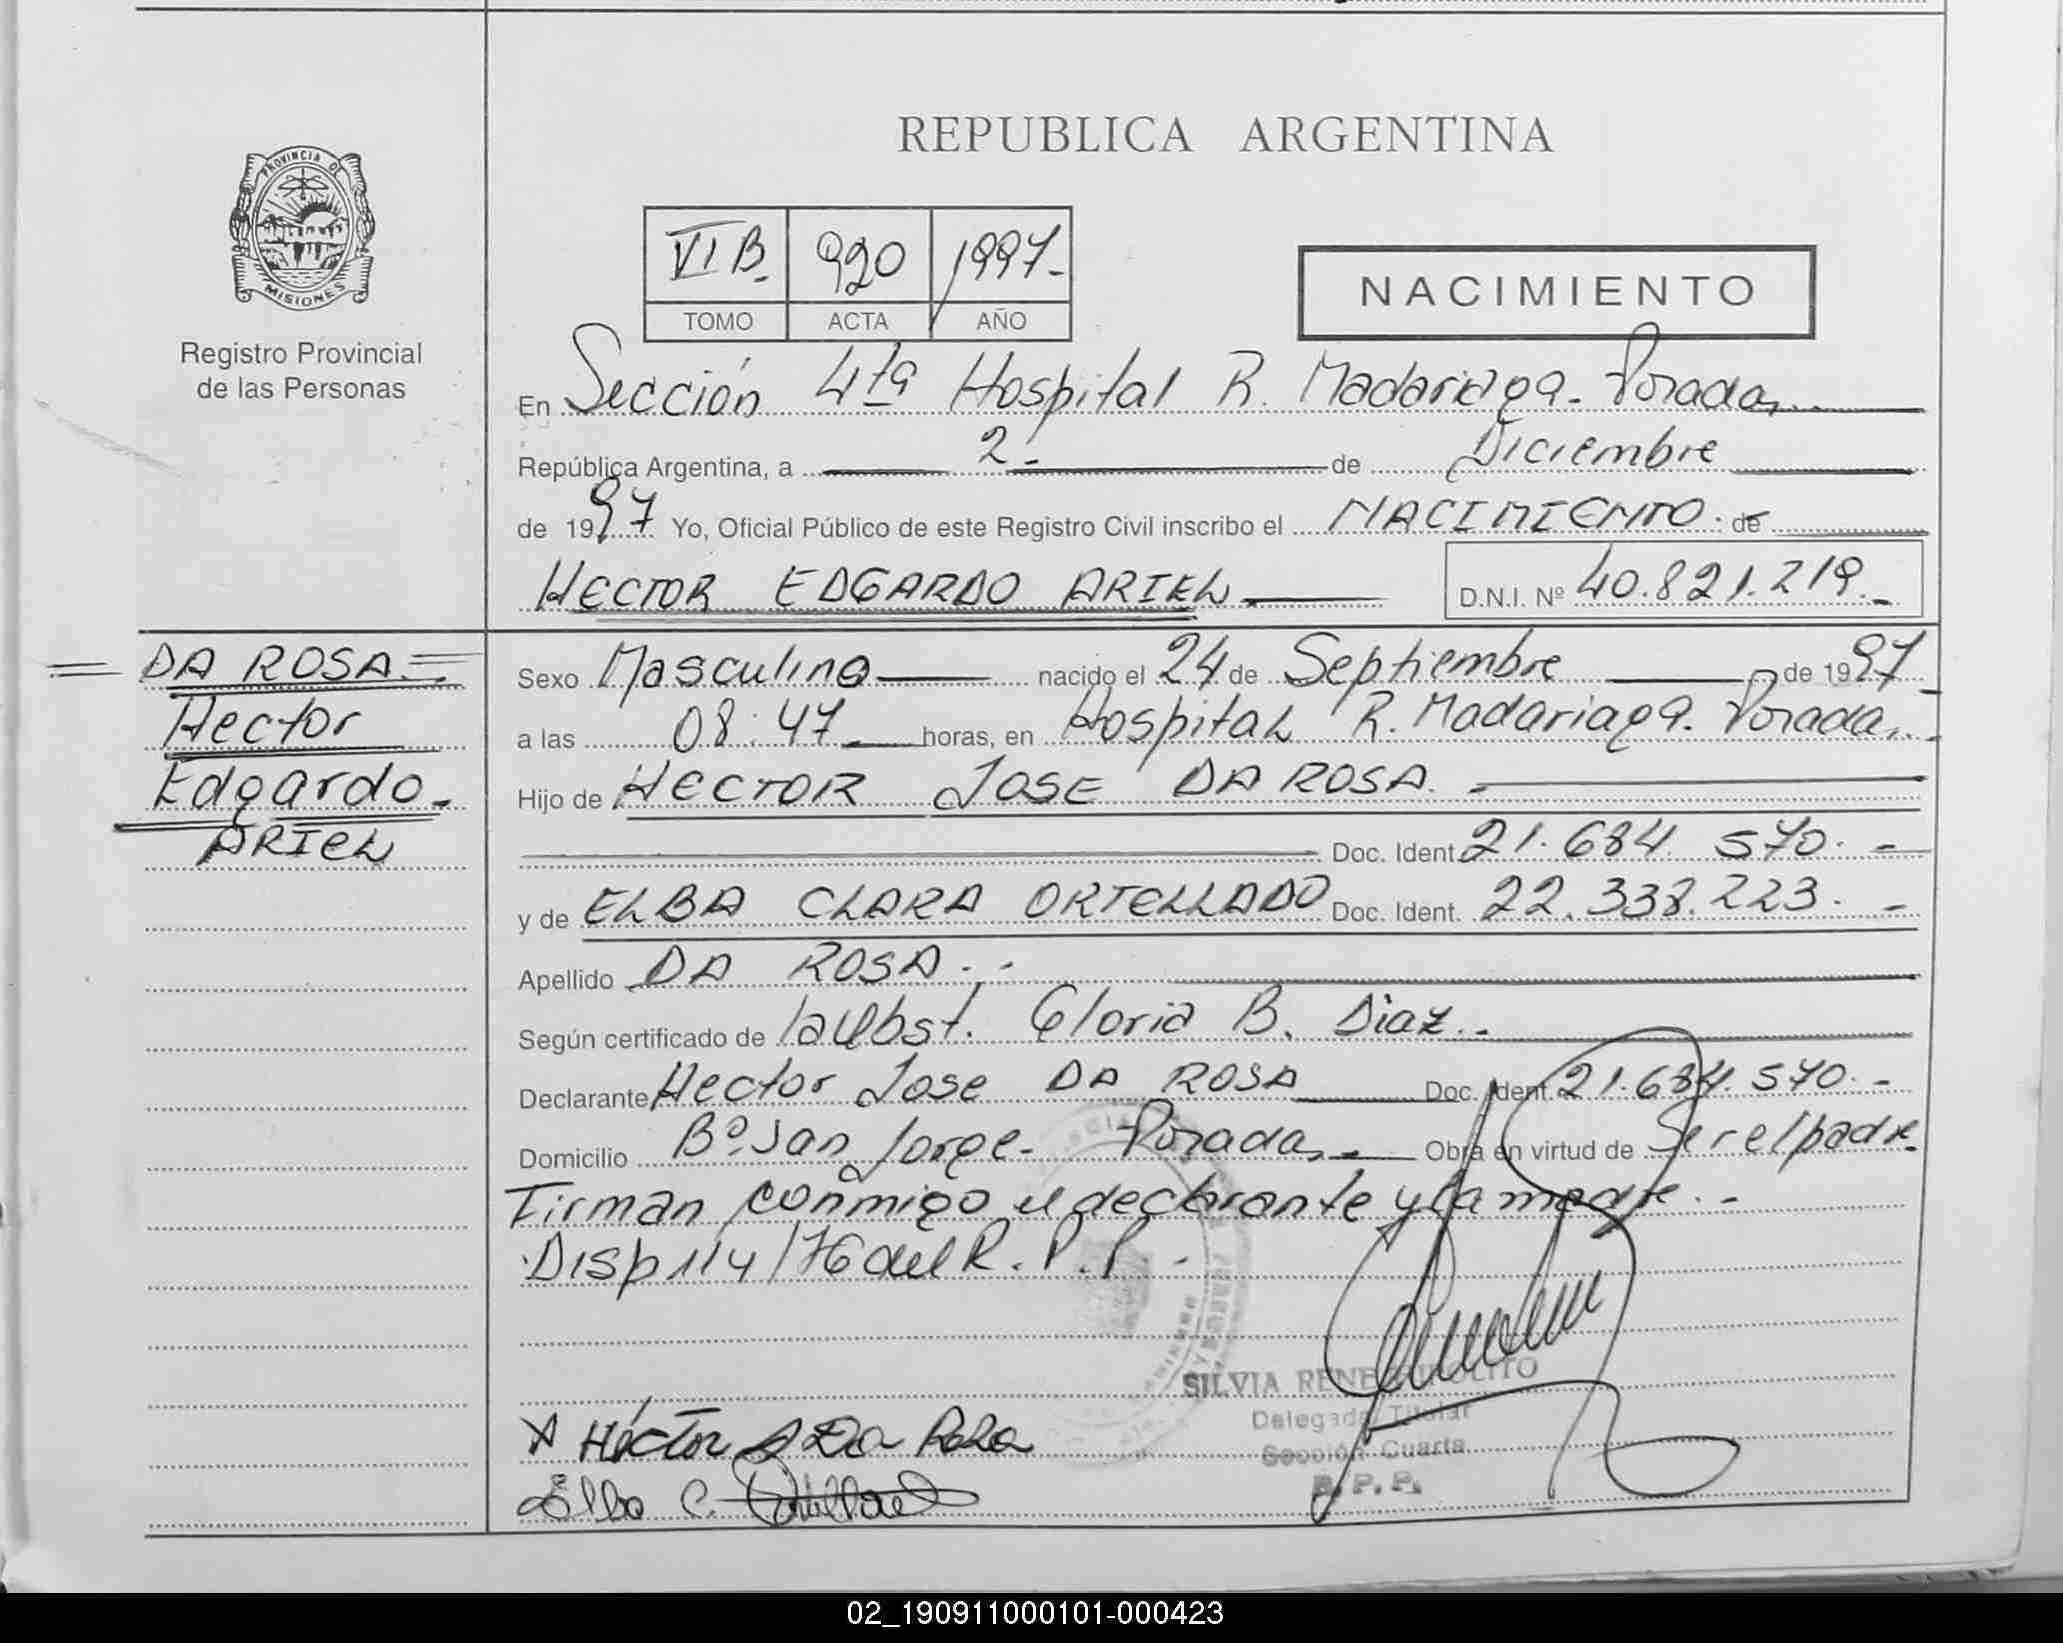 REPUBLICA ARGENTINA
PROVINCIA DE
MISIONES
Registro Provincial
de las Personas
VI B. 920 1997.-
TOMO ACTA AÑO
NACIMIENTO
En Sección 4ta Hospital R. Madariaga. Posadas
República Argentina, a 2.- de Diciembre
de 1997 Yo, Oficial Público de este Registro Civil inscribo el NACIMIENTO. de
HECTOR EDGARDO ARIEL D.N.I. Nº 40.821.219.-
DA ROSA
Hector
Edgardo.
ARIEL
Sexo Masculino nacido el 24 de Septiembre de 1997
a las 08:47 horas, en Hospital R. Madariaga. Posadas
Hijo de HECTOR JOSE DA ROSA.
Doc. Ident. 21.684.570.-
y de ELBA CLARA ORTELLADO Doc. Ident. 22.338.223.-
Apellido DA ROSA.-
Según certificado de la Obst. Gloria B. Diaz.-
Declarante Hector Jose DA ROSA Doc. Ident. 21.684.570.-
Domicilio Bº San Jorge- Posadas Obra en virtud de Ser el padre
Firman conmigo el declarante y la madre.-
Disp 114/76 del R.P.P.-
SILVIA RENE
Delegada Titular
Sección Cuarta
R.P.P.
Héctor J Da Rosa
Elba C. Ortellado
02_190911000101-000423